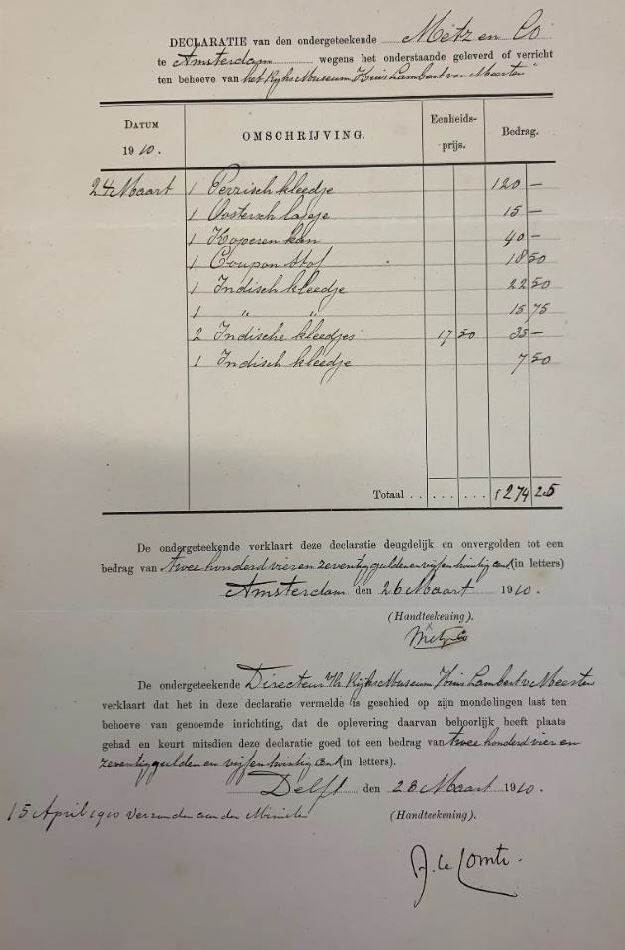 DECLARATIE van den ondergeteekende Metz en Co
te Amsterdam wegens het onderstaande geleverd of verricht
ten behoeve van het Rijks Museum "Huis Lambert van Meerten"
DATUM OMSCHRIJVING. Eenheids-prijs. Bedrag.
1910.
24 Maart 1 Perzisch kleedje 120 —
1 Oostersch lapje 15 —
1 Koperen kan 40 —
1 Coupon stof 18 50
1 Indisch kleedje 22 50
1 " " 15 75
2 Indische kleedjes 17 50 35 —
1 Indisch kleedje 7 50
Totaal . . . . . . . . f 274 25
De ondergeteekende verklaart deze declaratie deugdelijk en onvergolden tot een
bedrag van twee honderd vier en zeventig gulden en vijf en twintig cent (in letters)
Amsterdam den 26 Maart 1910.
(Handteekening).
Metz & Co
De ondergeteekende Directeur v/h Rijks Museum Huis Lambert v Meerten
verklaart dat het in deze declaratie vermelde is geschied op zijn mondelingen last ten
behoeve van genoemde inrichting, dat de oplevering daarvan behoorlijk heeft plaats
gehad en keurt mitsdien deze declaratie goed tot een bedrag van twee honderd vier en
zeventig gulden en vijf en twintig cent (in letters).
Delft den 28 Maart 1910.
15 April 1910 verzonden aan den Minister (Handteekening).
A. le Comte